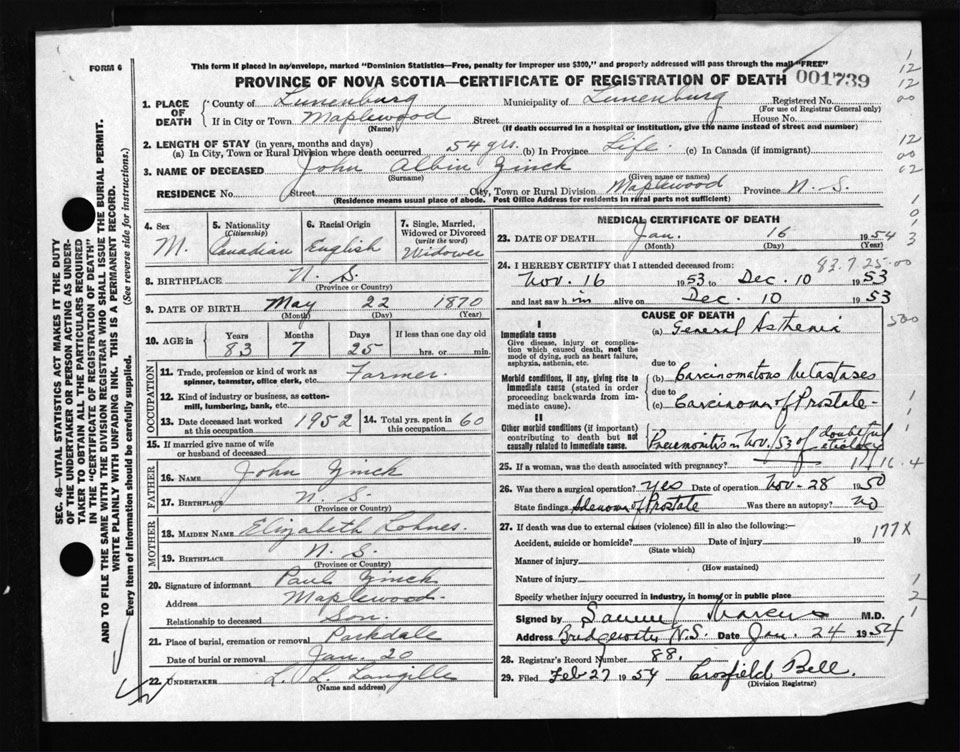 FORM 6
This form if placed in an envelope, marked "Dominion Statistics—Free, penalty for improper use $300," and properly addressed will pass through the mail "FREE"
PROVINCE OF NOVA SCOTIA—CERTIFICATE OF REGISTRATION OF DEATH 001739
1. PLACE OF DEATH
County of Lunenburg Municipality of Lunenburg Registered No.
(For use of Registrar General only)
If in City or Town Maplewood Street House No.
(Name) (If death occurred in a hospital or institution, give the name instead of street and number)
2. LENGTH OF STAY (in years, months and days)
(a) In City, Town or Rural Division where death occurred 54 yrs. (b) In Province Life. (c) In Canada (if immigrant)
3. NAME OF DECEASED John Albin Zinck
(Surname) (Given name or names)
RESIDENCE No. Street City, Town or Rural Division Maplewood Province N. S.
(Residence means usual place of abode. Post Office Address for residents in rural parts not sufficient)
4. Sex
M.
5. Nationality
(Citizenship)
Canadian
6. Racial Origin
English
7. Single, Married, Widowed or Divorced
(write the word)
Widower
8. BIRTHPLACE N. S.
(Province or Country)
9. DATE OF BIRTH May 22 1870
(Month) (Day) (Year)
10. AGE in
Years Months Days If less than one day old
83 7 25 hrs. or min.
OCCUPATION
11. Trade, profession or kind of work as spinner, teamster, office clerk, etc. Farmer.
12. Kind of industry or business, as cotton-mill, lumbering, bank, etc.
13. Date deceased last worked at this occupation 1952
14. Total yrs. spent in this occupation 60
15. If married give name of wife or husband of deceased
FATHER
16. NAME John Zinck
17. BIRTHPLACE N. S.
(Province or Country)
MOTHER
18. MAIDEN NAME Elizabeth Lohnes.
19. BIRTHPLACE N. S.
(Province or Country)
20. Signature of informant Paul Zinck
Address Maplewood.
Relationship to deceased Son.
21. Place of burial, cremation or removal Parkdale
Date of burial or removal Jan. 20
22. UNDERTAKER L. L. Langille
(Name and address)
MEDICAL CERTIFICATE OF DEATH
23. DATE OF DEATH Jan. 16 1954
(Month) (Day) (Year)
83.7.25.00
24. I HEREBY CERTIFY that I attended deceased from:
Nov. 16 1953 to Dec. 10 1953
and last saw him alive on Dec. 10 1953
CAUSE OF DEATH
I
Immediate cause
Give disease, injury or complication which caused death, not the mode of dying, such as heart failure, asphyxia, asthenia, etc.
(a) General Asthenia
due to
Morbid conditions, if any, giving rise to immediate cause (stated in order proceeding backwards from immediate cause).
(b) Carcinomatous Metastases
due to
(c) Carcinoma of Prostate
II
Other morbid conditions (if important) contributing to death but not causally related to immediate cause.
Pneumonitis in Nov./53 of doubtful etiology
25. If a woman, was the death associated with pregnancy?
11/16.4
26. Was there a surgical operation? Yes Date of operation Nov-28 1950
State findings Adenoma of Prostate Was there an autopsy? No
27. If death was due to external causes (violence) fill in also the following:—
177X
Accident, suicide or homicide? Date of injury 19
(State which)
Manner of injury
(How sustained)
Nature of injury
Specify whether injury occurred in industry, in home, or in public place
Signed by Marcus M.D.
Address Bridgewater N.S. Date Jan. 24 1954
28. Registrar's Record Number 88.
29. Filed Feb 27 1954 Crosfield Bell.
(Division Registrar)
SEC. 46—VITAL STATISTICS ACT MAKES IT THE DUTY
OF THE UNDERTAKER OR PERSON ACTING AS UNDER-
TAKER TO OBTAIN ALL THE PARTICULARS REQUIRED
IN THE "CERTIFICATE OF REGISTRATION OF DEATH"
AND TO FILE THE SAME WITH THE DIVISION REGISTRAR WHO SHALL ISSUE THE BURIAL PERMIT.
WRITE PLAINLY WITH UNFADING INK. THIS IS A PERMANENT RECORD.
Every item of information should be carefully supplied. (See reverse side for instructions.)
1
12
12
00
12
00
02
1
0
9
3
500
1
1
1
1
2
1